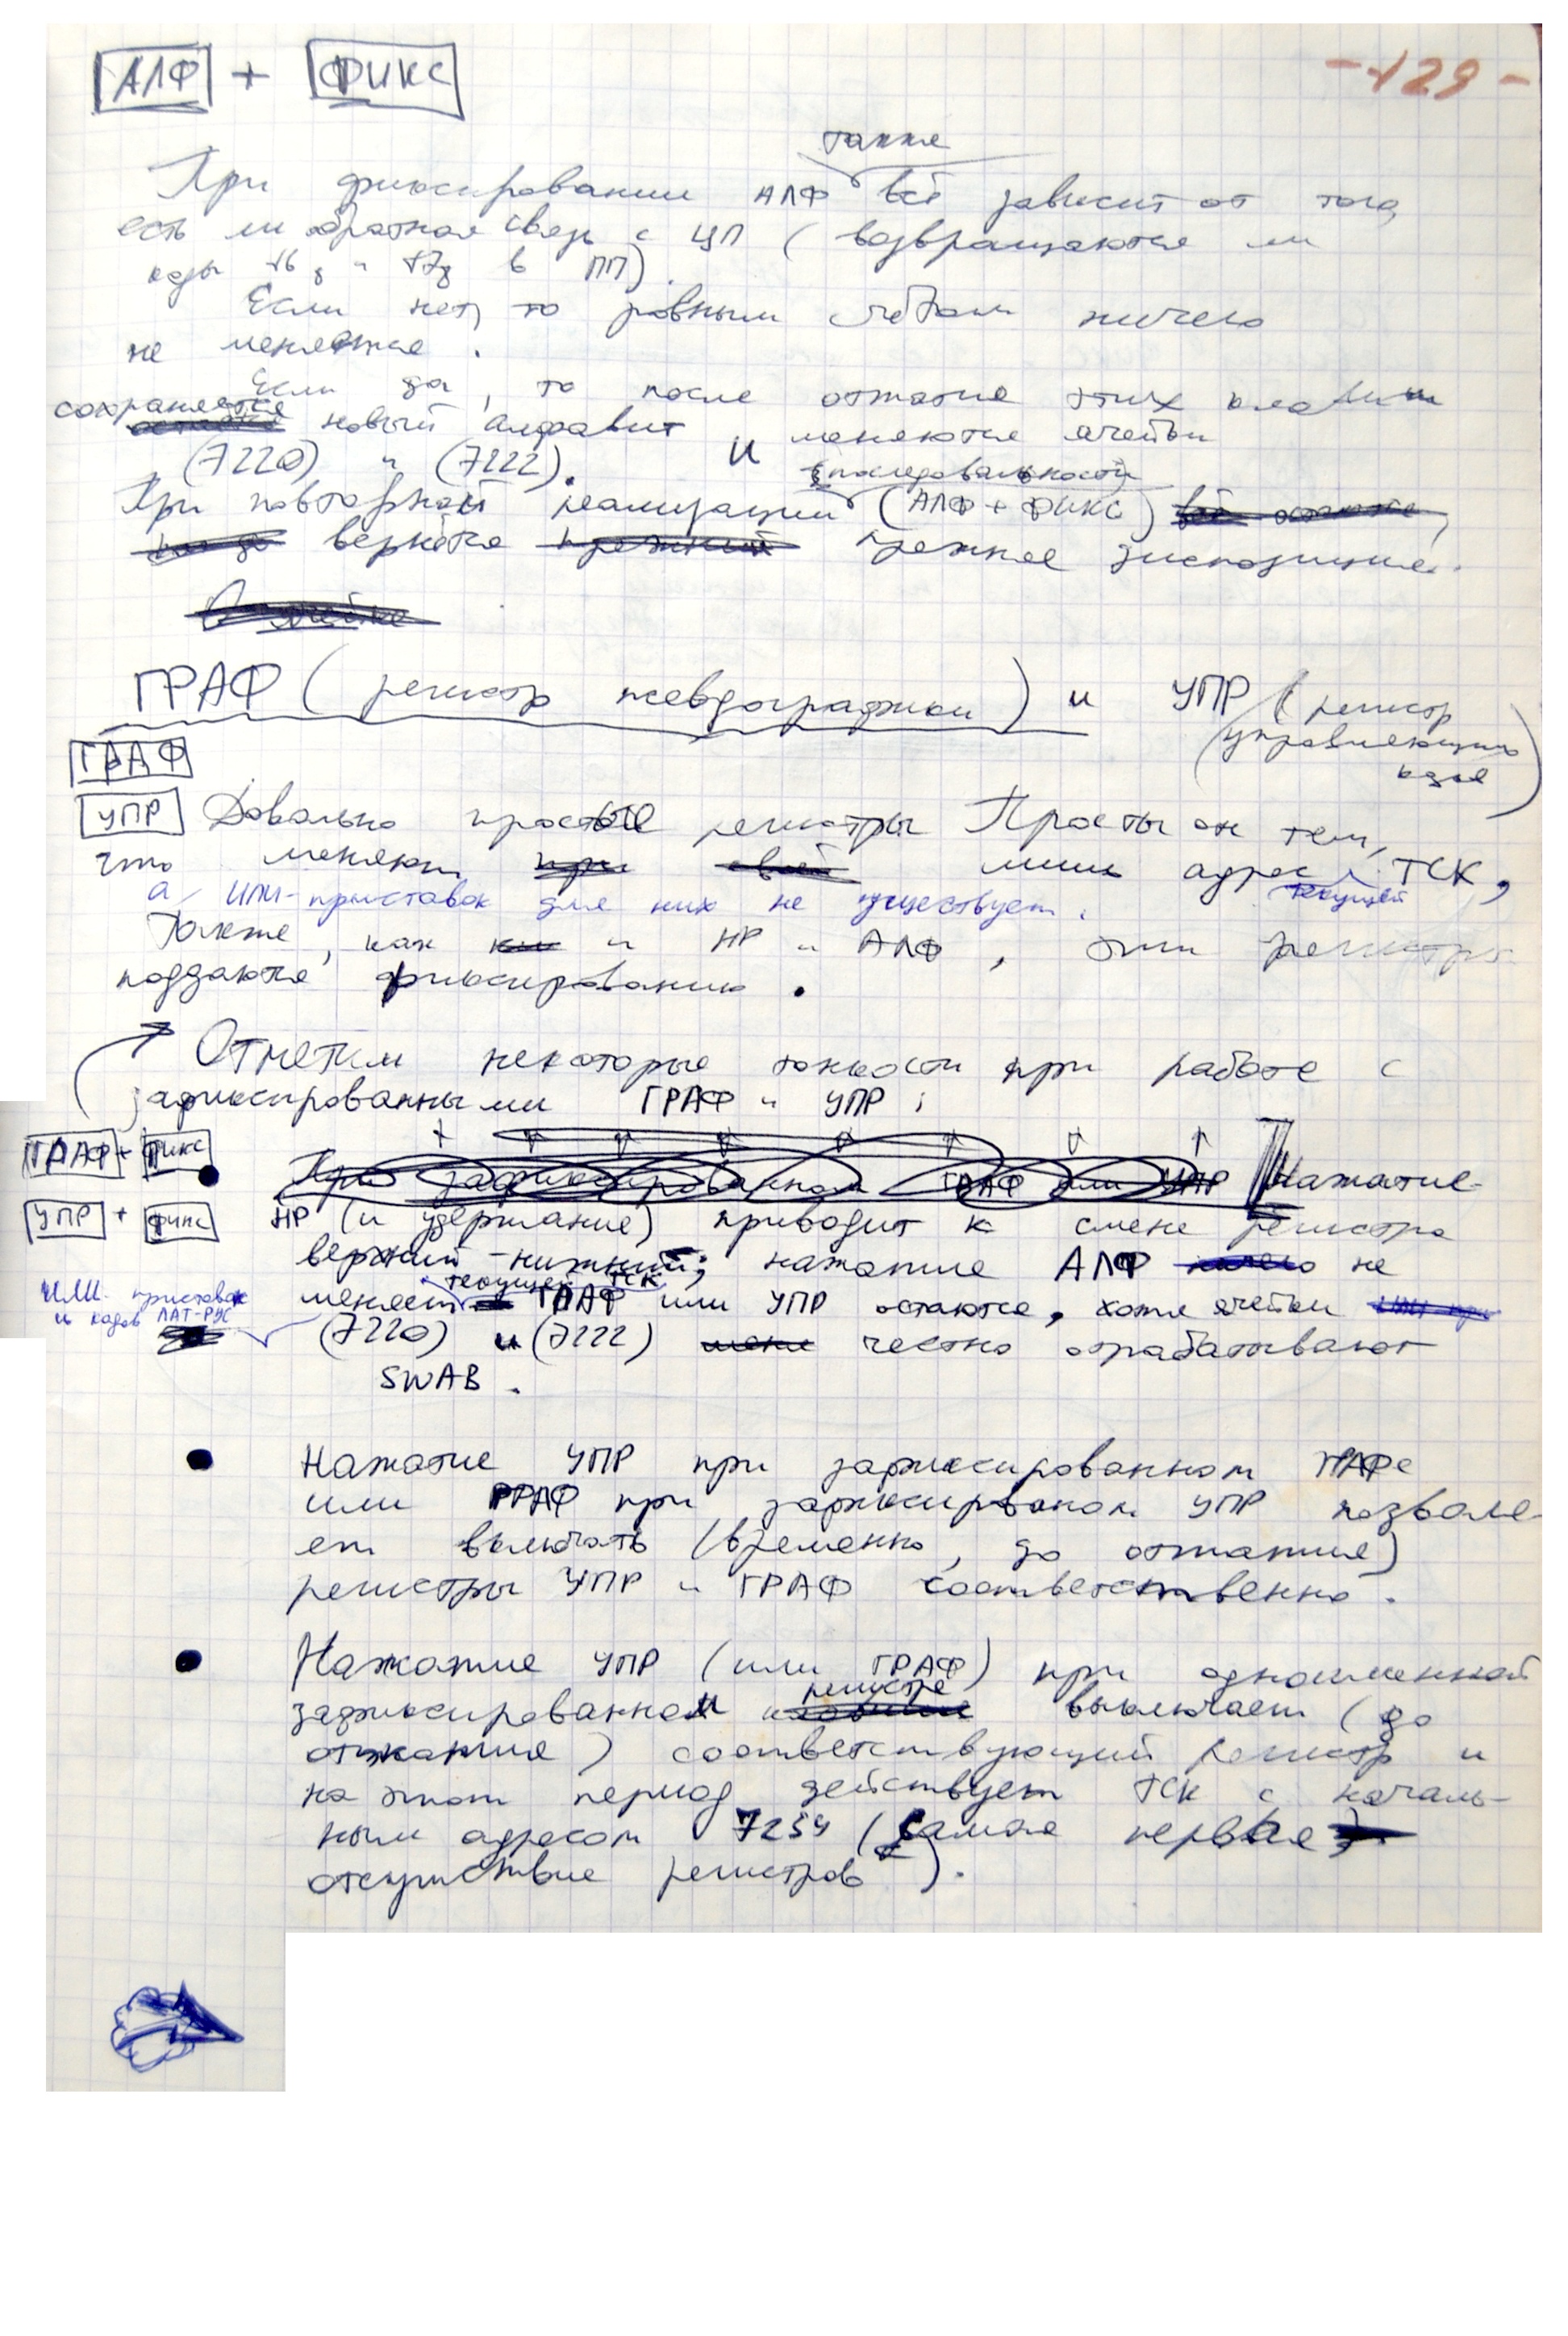 АЛФ + ФИКС
-129-
также
При фиксировании АЛФ всё зависит от того,
есть ли обратная связь с ЦП (возвращаются ли
коды 16₈ и 17₈ в ПП).
Если нет, то ровным счётом ничего
не меняется.
Если да, то после отжатия этих клавиш
сохраняется новый алфавит и меняются ячейки
(7220) и (7222).
последовательности
При повторной реализации (АЛФ + ФИКС)
вернётся прежнее
ГРАФ (регистр псевдографики) и УПР (регистр
управляющих
кодов)
ГРАФ
УПР Довольно простые регистры. Просты он тем,
что меняют лишь адрес текущей ТСК,
а ИЛИ-приставок для них не существует.
Также, как и НР и АЛФ, эти регистры
поддаются фиксированию.
Отметим некоторые тонкости при работе с
зафиксированными ГРАФ и УПР:
ГРАФ + ФИКС
При зафиксированном ГРАФ или УПР Нажатие
УПР + ФИКС
НР (и удержание) приводит к смене регистра
верхний-нижний; нажатие АЛФ не
текущей ТСК
меняет ГРАФ или УПР остаются, хотя ячейки
ИЛИ-приставок
и кодов ЛАТ-РУС
(7220) и (7222) честно отрабатывают
SWAB.
Нажатие УПР при зафиксированном ГРАФе
или ГРАФ при зафиксированом УПР позволя-
ет включать (временно, до отжатия)
регистры УПР и ГРАФ соответственно.
Нажатие УПР (или ГРАФ) при одноименной
регистре
зафиксированном выключает (до
отжатия) соответствующий регистр и
на этот период действует ТСК с началь-
ным адресом 7254 (самая первая
отсутствие регистров).